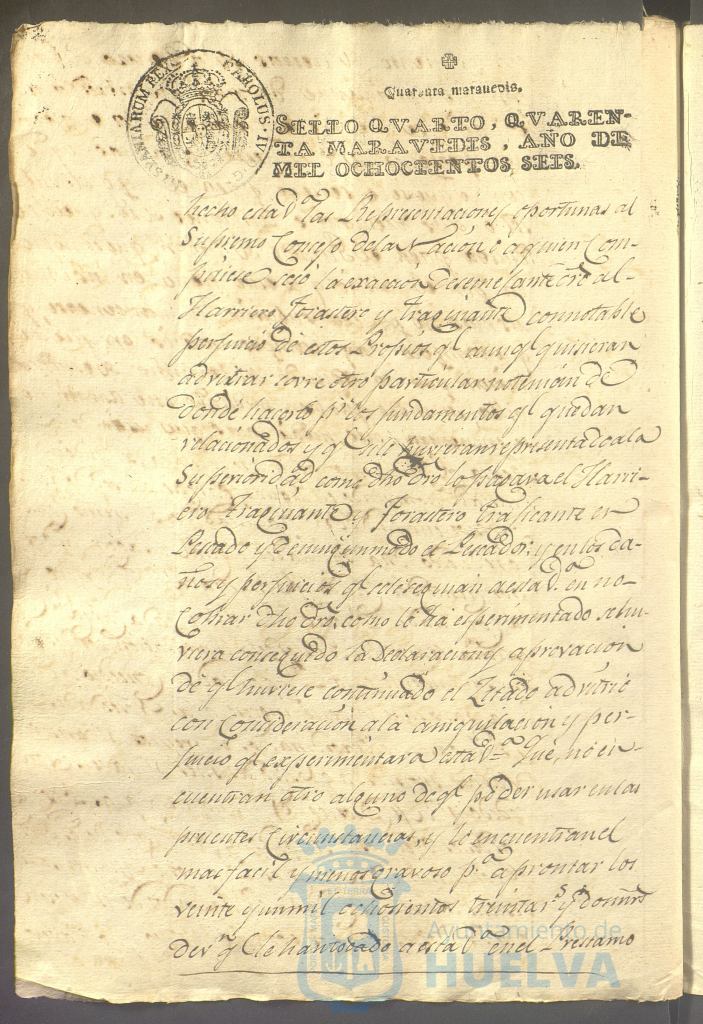 HISPANIARUM REX CAROLUS IV
Quarenta maravedis.
SELLO QVARTO, QVAREN-
TA MARAVEDIS, AÑO DE
MIL OCHOCIENTOS SEIS.
hecho esta Vª las Representaciones oportunas al
Supremo Consejo de la Nacion o a quien Com-
petiese, cesó la exaccion de semejante dro al
Harriero Forastero y traginante con notable
perjuicio de estos Propios q aunq quisieran
advitrar sovre otro particular no tenian de
donde hacerlo pr los fundamentos q quedan
relacionados y q si se huvieran representado a la
Superioridad como dho dro lo pagava el Harri-
ero Traginante y Forastero traficante en
Pescado y de ningun modo el Pescador, y en los da-
ños y perjuicios q se le seguian a esta Vª en no
Cobrar dho dro, como lo ha esperimentado se hu-
viera conseguido la Declaracion y aprovacion
de q huviese continuado el citado advitrio
con consideracion a la aniquilacion y per-
juicio q experimentara esta Vª Que, no en-
cuentran otro alguno de q poder usar en las
presentes Circunstancias, y lo encuentran el
mas facil y menos gravoso pª aprontar los
veinte y un mil ochosientos treinta rs y dos mrs
de vn q le han tocado a esta Vª en el Prestamo
Ayuntamiento de
HUELVA